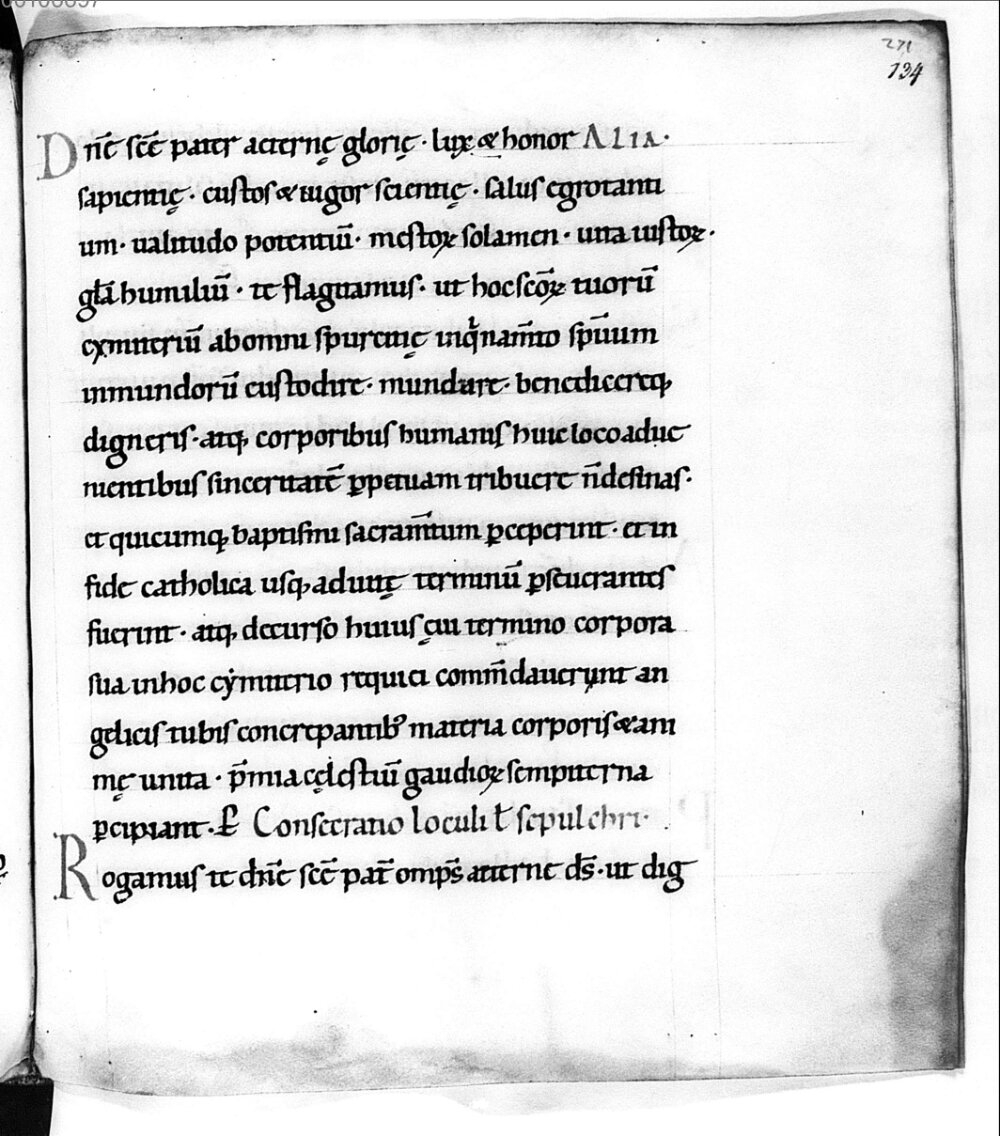 271
134
Dn̄e sc̄e pater aeternę glorię · lux & honor ALIA·
sapientię · custos & uigor scientię · salus egrotanti
um · ualitudo potentiū · mestoꝝ solamen · uita iustoꝝ ·
gl̄a humiliū · te flagitamus · ut hoc sc̄oꝝ tuorū
cymiteriū ab omni spurcitię inq̇nam̄to spūum
inmundorū custodire · mundare · benedicereq;
digneris · atq; corporibus humanis huic loco adue
nientibus sinceritatē ꝑpetuam tribuere n̄ destinas ·
et quicumq; baptismi sacram̄tum perceperint · et in
fide catholica usq; ad uitę terminū ꝑseuerantes
fuerint · atq; decurso huius ęui termino corpora
sua in hoc cẏmiterio requiei comm̄dauerunt an
gelicis tubis concrepantib; materia corporis & ani
mę unita · p̄mia cęlestiū gaudioꝝ sempiterna
ꝑcipiant · ꝑ Consecratio loculi ł sepulchri ·
Rogamus te dn̄e sc̄e pat̄ omps̄ aeterne ds̄ · ut dig